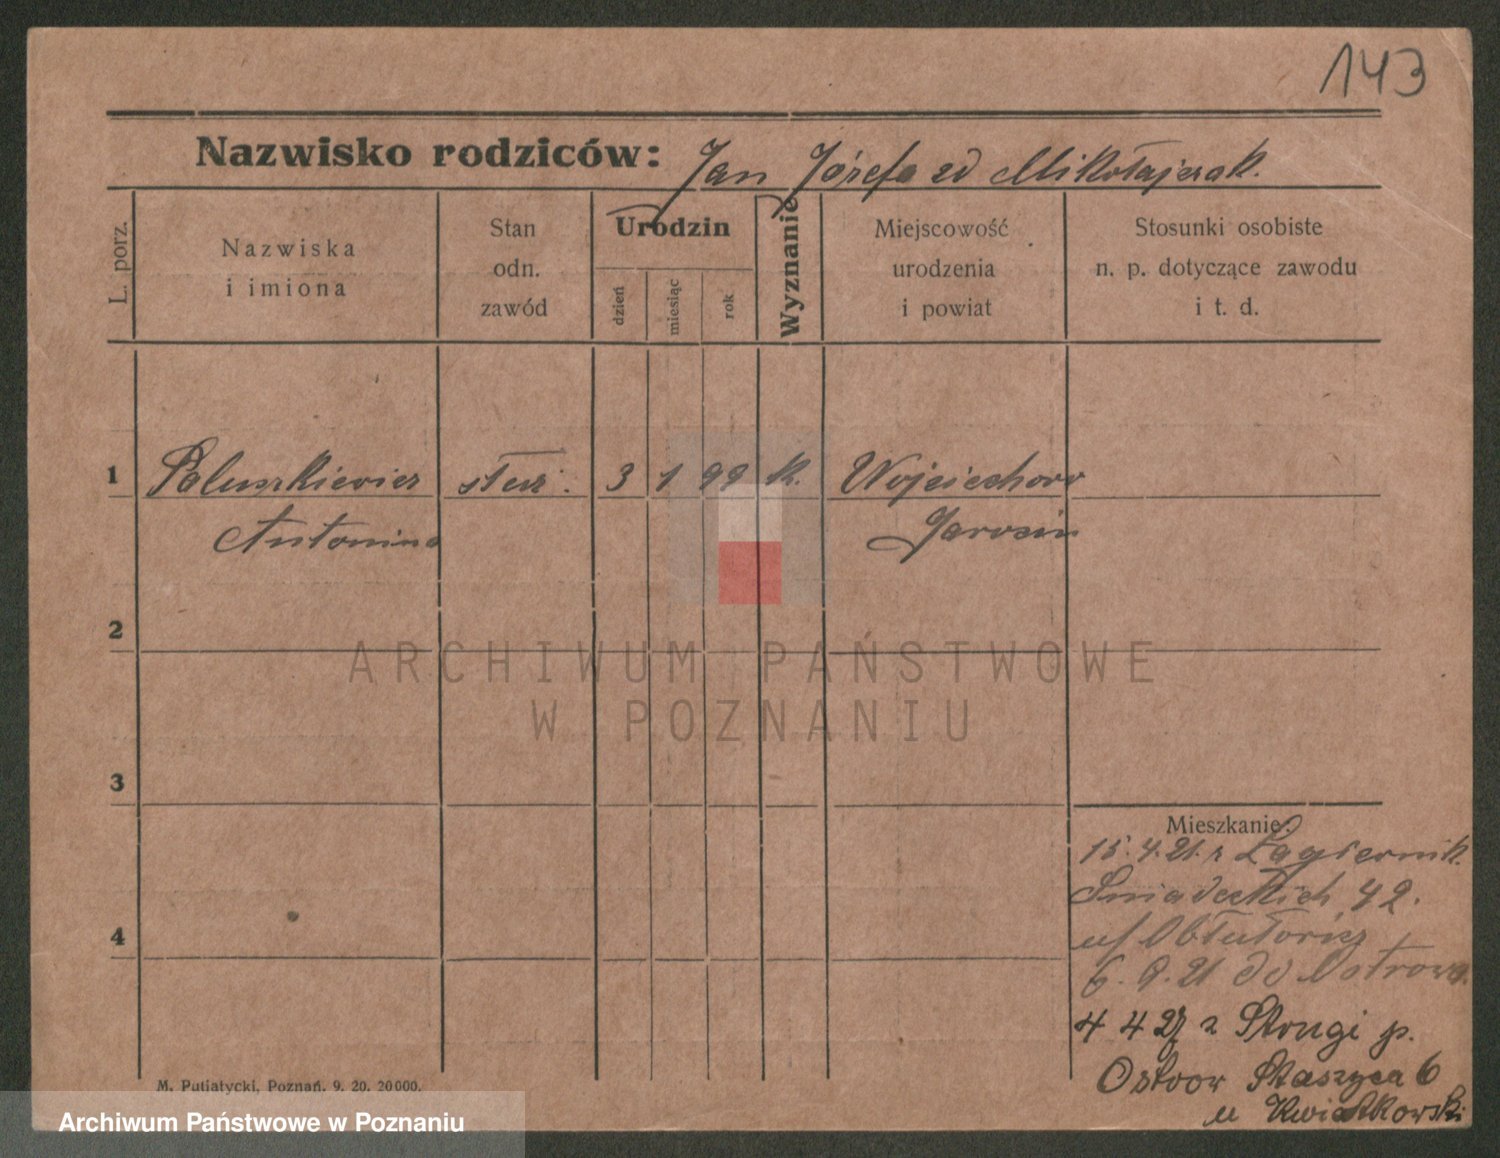 143
Nazwisko rodziców: Jan Józefa zd Mikołajczak.
L. porz.
Nazwiska
i imiona
Stan
odn.
zawód
Urodzin
dzień
miesiąc
rok
Wyznanie
Miejscowość
urodzenia
i powiat
Stosunki osobiste
n. p. dotyczące zawodu
i t. d.
1 Paluszkiewicz służ. 3 1 99 k. Wojciechow
Antonina Jarocin
2
ARCHIWUM PAŃSTWOWE
W POZNANIU
3
4
Mieszkanie:
15.4.21. z Łagiernik.
Śniadeckich 42.
6.9.21 do Ostrowa.
4 4 27 z Strugi p.
Ostrow Staszyca 6
u Kwiatkowski
M. Putiatycki, Poznań. 9. 20. 20000.
Archiwum Państwowe w Poznaniu